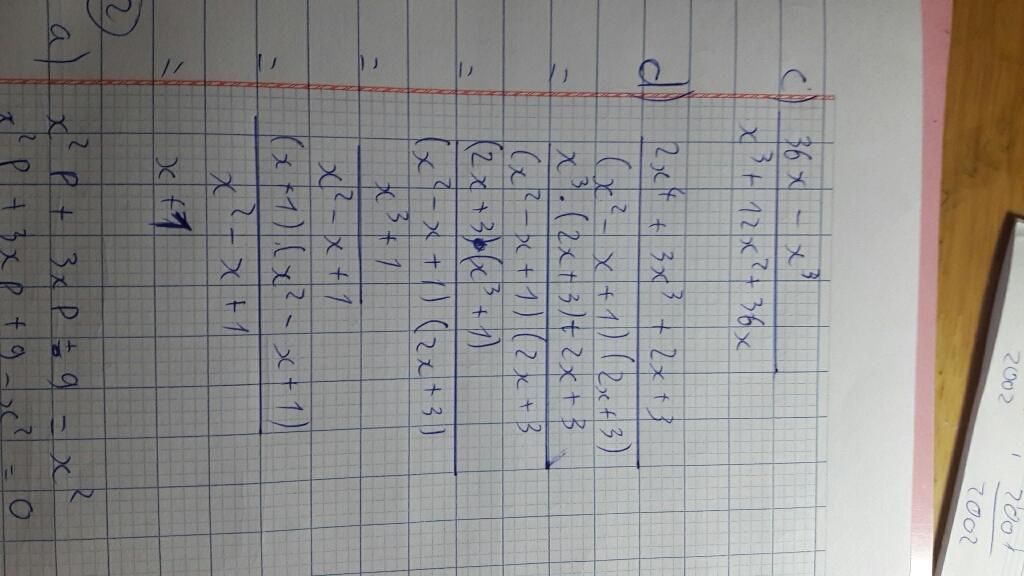 c) 36x - x³
x³ + 12x² + 36x
d) 2x⁴ + 3x³ + 2x + 3
(x² - x + 1) (2x + 3)
= x³ · (2x + 3) + 2x + 3
(x² - x + 1) (2x + 3
= (2x + 3) (x³ + 1)
(x² - x + 1) (2x + 3)
= x³ + 1
x² - x + 1
= (x + 1) · (x² - x + 1)
x² - x + 1
= x + 1
2
a) x² p + 3xp + 9 = x²
x² p + 3xp + 9 - x² = 0
2002 , 2001
2002